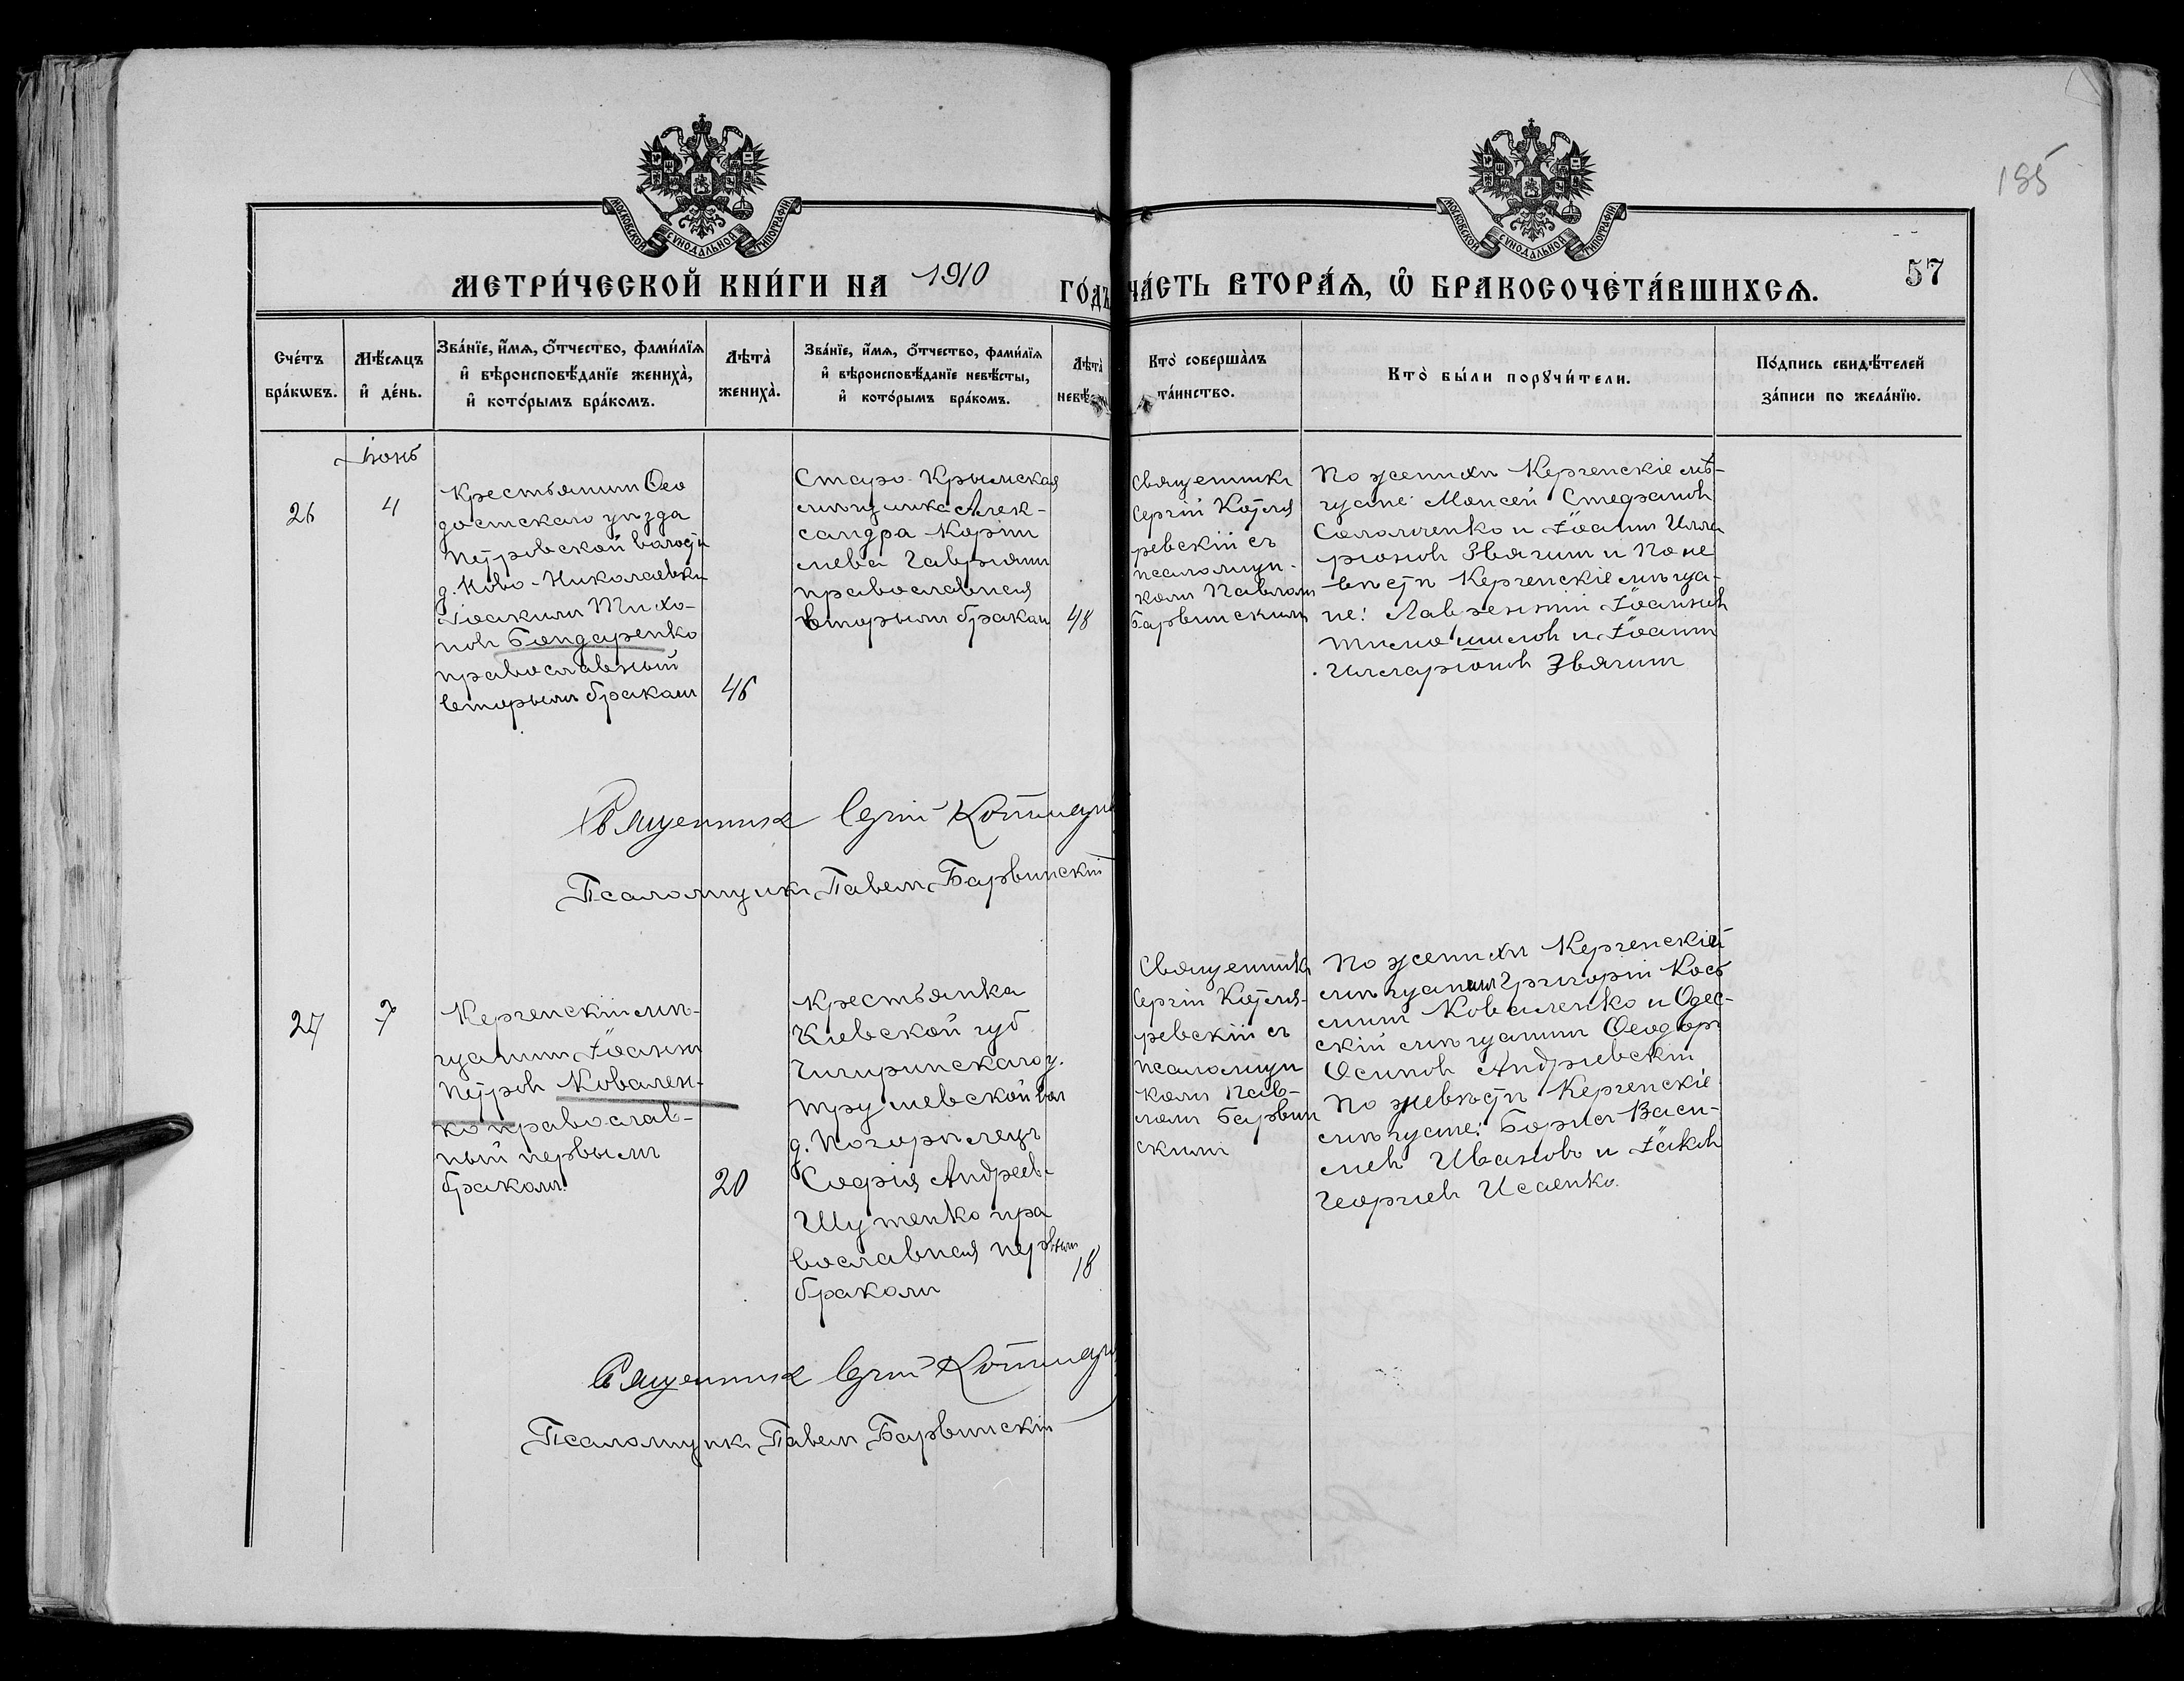 185
МОСКОВСКОЙ СѴНОДАЛЬНОЙ ТИПОГРАФІИ
МОСКОВСКОЙ СѴНОДАЛЬНОЙ ТИПОГРАФІИ
МЕТРИ́ЧЕСКОЙ КНИ́ГИ НА 1910 ГО́ДЪ
ЧА́СТЬ ВТОРА́Ѧ, Ѽ БРАКОСОЧЕТА́ВШИХСѦ.
57
Сче́тъ бра́кѡвъ.
Мѣ́сяцъ и҆ де́нь.
Зва́нїе, и҆́мя, о҆́тчество, фами́лїя и҆ вѣроисповѣ́данїе жениха̀, и҆ кото́рымъ бра́комъ.
Лѣта̀ жениха̀.
Зва́нїе, и҆́мя, о҆́тчество, фами́лїя и҆ вѣроисповѣ́данїе невѣ́сты, и҆ кото́рымъ бра́комъ.
Лѣта̀ невѣ
Кто̀ соверша̀лъ та́инство.
Кто̀ бы́ли порꙋчи́тели.
По́дпись свидѣ́телей за́писи по жела́нїю.
Іюнь
26
4
Крестьянинъ Ѳео
досійскаго уѣзда
Петровской волости
д. Ново-Николаевки
Іоакимъ Тихо-
новъ Бондаренко
православный
вторымъ бракомъ
46
Старо-Крымская
мѣщанка Алек-
сандра Корни
лиева
православная
вторымъ бракомъ
48
Священникъ
Сергій Котля
ревскій съ
псаломщи-
комъ Павломъ
Барвинскимъ
По женихѣ Керченскіе мѣ-
щане: Моисей Стефановъ
Соломченко и Іоаннъ Илла
ріоновъ Звягинъ и По не
вѣстѣ Керченскіе мѣща-
не: Лаврентій Іоанновъ
и Іоаннъ
Илларіоновъ Звягинъ
Священникъ Сергій Котляр
Псаломщикъ Павелъ Барвинскій
27
7
Керченскій мѣ-
щанинъ Іоаннъ
Петровъ Ковален-
ко православ-
ный первымъ
бракомъ.
20
Крестьянка
Кіевской губ.
Чигиринскаго у.
Трушевской вол
д. Погорѣлецъ
Софія Андреев.
Шутенко пра
вославная первымъ
бракомъ
18
Священникъ
Сергій Котля-
ревскій съ
псаломщи
комъ Пав-
ломъ Барвин
скимъ
По женихѣ Керченскій
мѣщанинъ Григорій Кось
минъ Коваленко и Одес-
скій мѣщанинъ Ѳеодоръ
Осиповъ Андріевскій
По невѣстѣ Керченскіе
мѣщане: Борисъ Васи-
лиевъ Ивановъ и Іаковъ
Георгіевъ Исаенко.
Священникъ Сергій Котляр
Псаломщикъ Павелъ Барвинскій